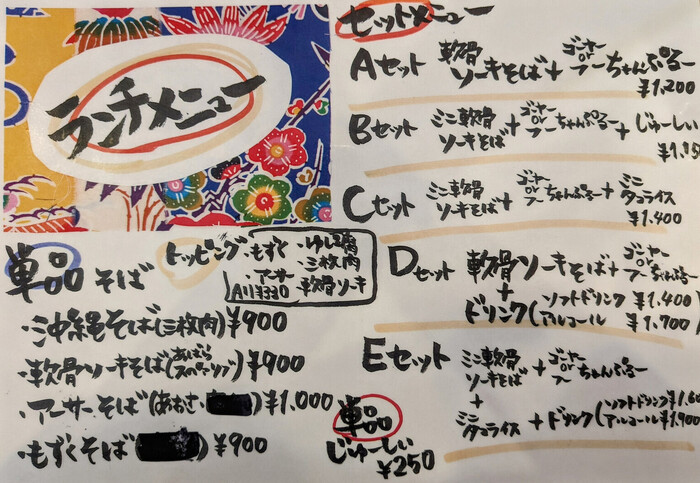 ランチメニュー
単品 そば
トッピング
・もずく ・ゆし豆腐
・三枚肉
・アーサー ・軟骨ソーキ
All ¥330
・沖縄そば(三枚肉)¥900
・軟骨ソーキそば(あばらスペアリブ)¥900
・アーサーそば(あおさ)¥1,000
・もずくそば ¥900
セットメニュー
Aセット 軟骨ソーキそば+ゴーヤーorフーちゃんぷるー
¥1,200
Bセット ミニ軟骨ソーキそば+ゴーヤーorフーちゃんぷるー+じゅーしぃ
Cセット ミニ軟骨ソーキそば+ゴーヤーorフーちゃんぷるー+ミニタコライス
¥1,400
Dセット 軟骨ソーキそば+ゴーヤーorフーちゃんぷるー
+ドリンク(ソフトドリンク ¥1,400
アルコール ¥1,700)
Eセット ミニ軟骨ソーキそば+ゴーヤーorフーちゃんぷるー
+
ミニタコライス+ドリンク(ソフトドリンク
アルコール ¥1,900
単品
じゅーしぃ
¥250